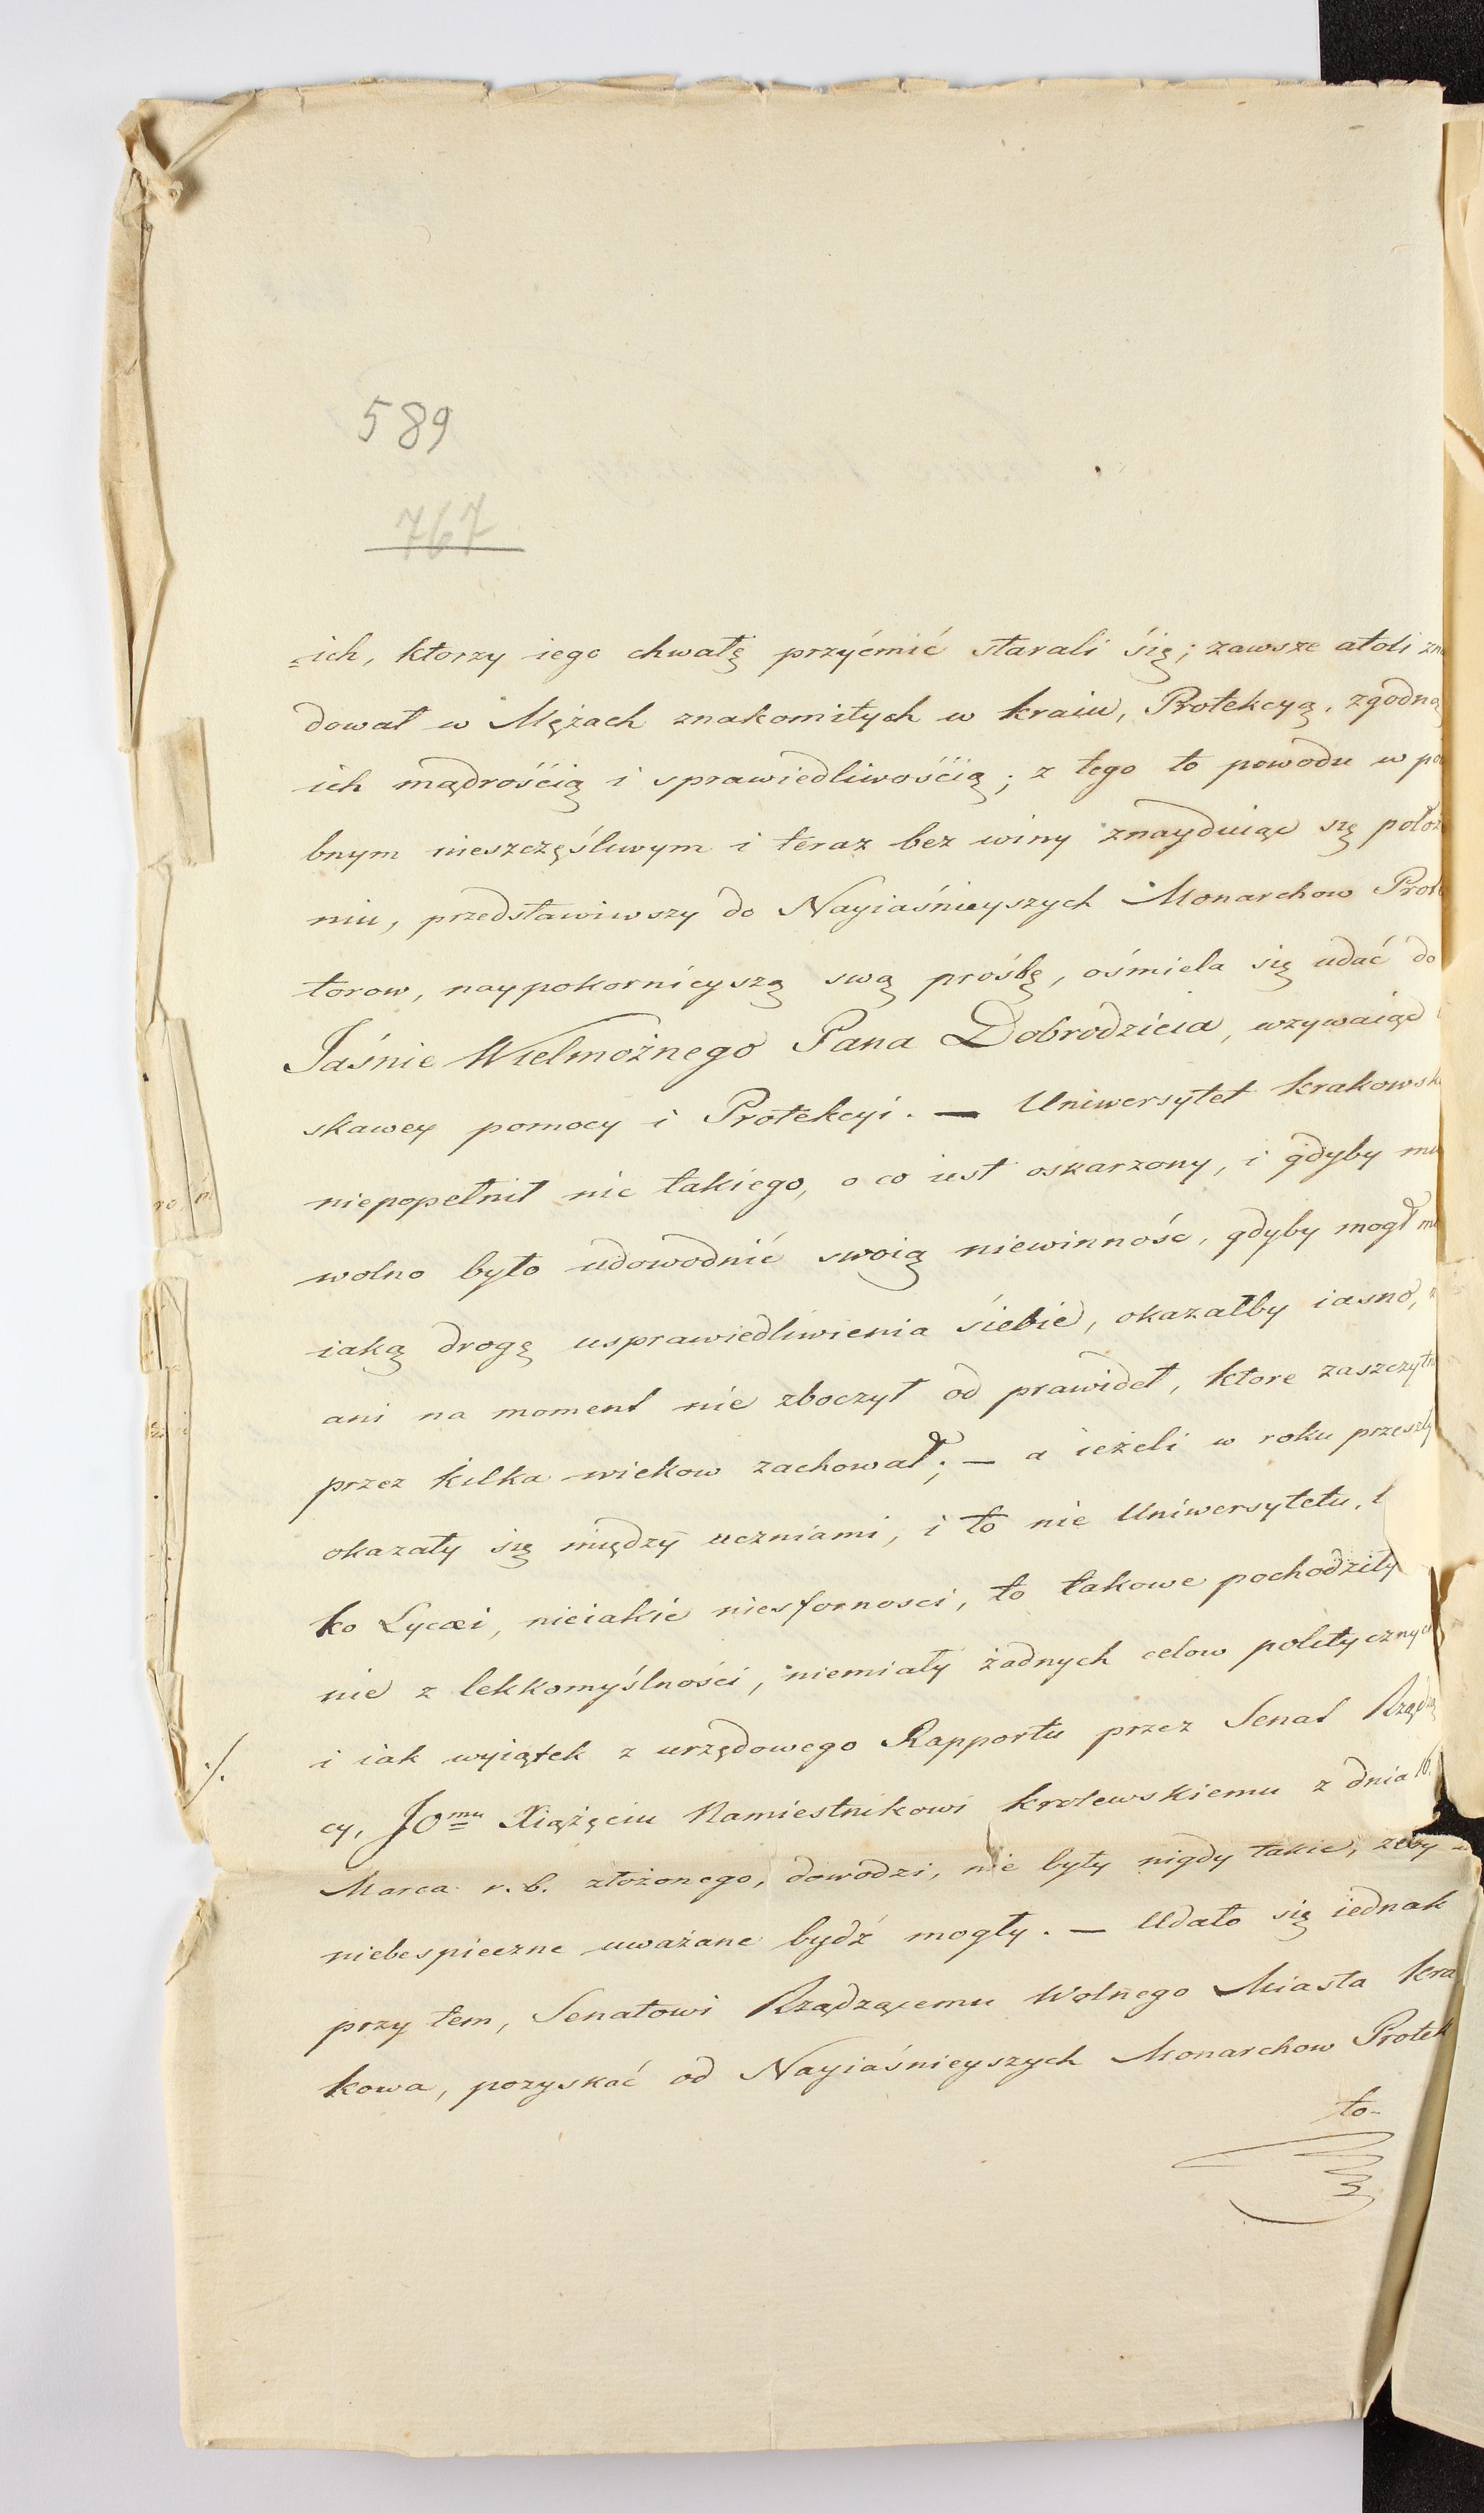 589
767
=ich, ktorzy iego chwałę przyćmić starali śię; zawsze atoli zn
dował w Mężach znakomitych w kraiu, Protekcyą, zgodną
ich mądrośćią i sprawiedliwośćią; z tego to powodu w po
bnym nieszczęśliwym i teraz bez winy znayduiąc się położ
niu, przedstawiwszy do Nayiaśnieyszych Monarchow Prote
torow, naypokornieyszą swą prośbę, ośmiela się udać do
Jaśnie Wielmożnego Pana Dobrodzieia, wzywaiąc
skawey pomocy i Protekcyi. — Uniwersytet krakowsk
niepopełnił nic takiego, o co iest oskarzony, i gdyby mu
wolno było udowodnić swoią niewinnośc, gdyby mogł mi
iaką drogę usprawiedliwienia śiebie, okazałby iasno,
ani na moment nie zboczył od prawideł, ktore zaszczytn
przez kilka wiekow zachował; — a ieżeli w roku przeszły
okazały się między uczniami, i to nie Uniwersytetu,
ko Lycæi, nieiakie niesfornosci, to takowe pochodziły
nie z lekkomyślności, niemiały żadnych celow politycznych
./. i iak wyiątek z urzędowego Rapportu przez Senat Rządzą
cy, JO<sup>mu</sup> Xiążęciu Namiestnikowi krolewskiemu z dnia 10.
Marca r. b. złożonego, dowodzi, nie były nigdy takie, zeby
niebespieczne uważane bydź mogły. — Udało się iednak
przy tem, Senatowi Rządzącemu Wolnego Miasta Kra
kowa, pozyskać od Nayiaśnieyszych Monarchow Protek
to-